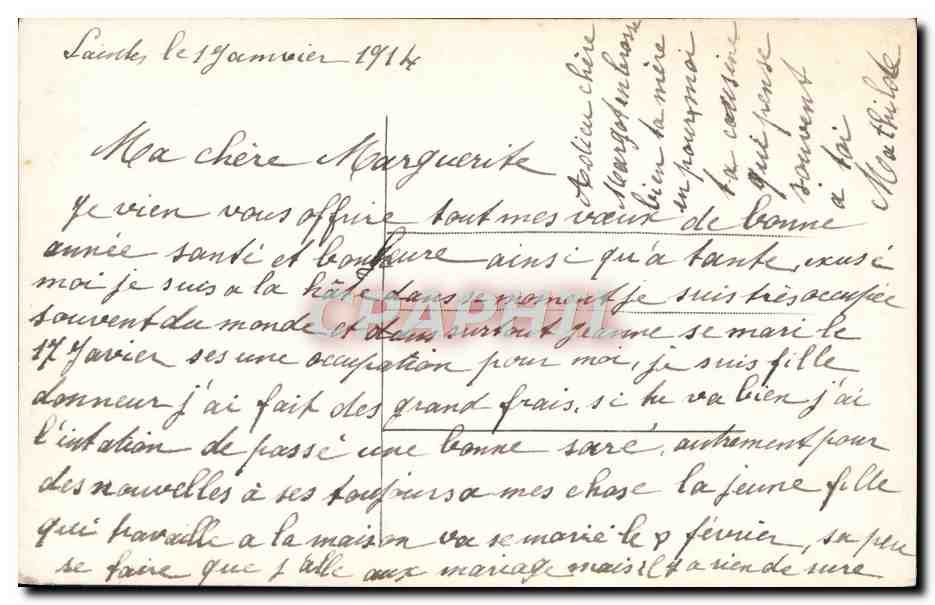 Saintes le 1 Janvier 1914
Ma chère Marguerite
Je vien vous offrire tout mes vœux de bonne
année santé et bonheure ainsi qu'a tante, exusé
moi je suis a la hâte dans se moment je suis très occupée
souvent du monde et dans surtout Jeanne se mari le
17 Javier ses une occupation pour moi, je suis fille
donneur j'ai fait des grand frais, si tu va bien j'ai
l'intation de passé une bonne soiré, autrement pour
des nouvelles à ses toujours a mes chose la jeune fille
qui travaille a la maison va se marié le 8 février, su peu
se faire que j'alle aux mariage mais il t a rien de sure
Adieu chère
Margot embrasse
bien ta mère
pour moi
ta cousine
qui pense
souvent
a toi
Mathilde
CPAPHIL